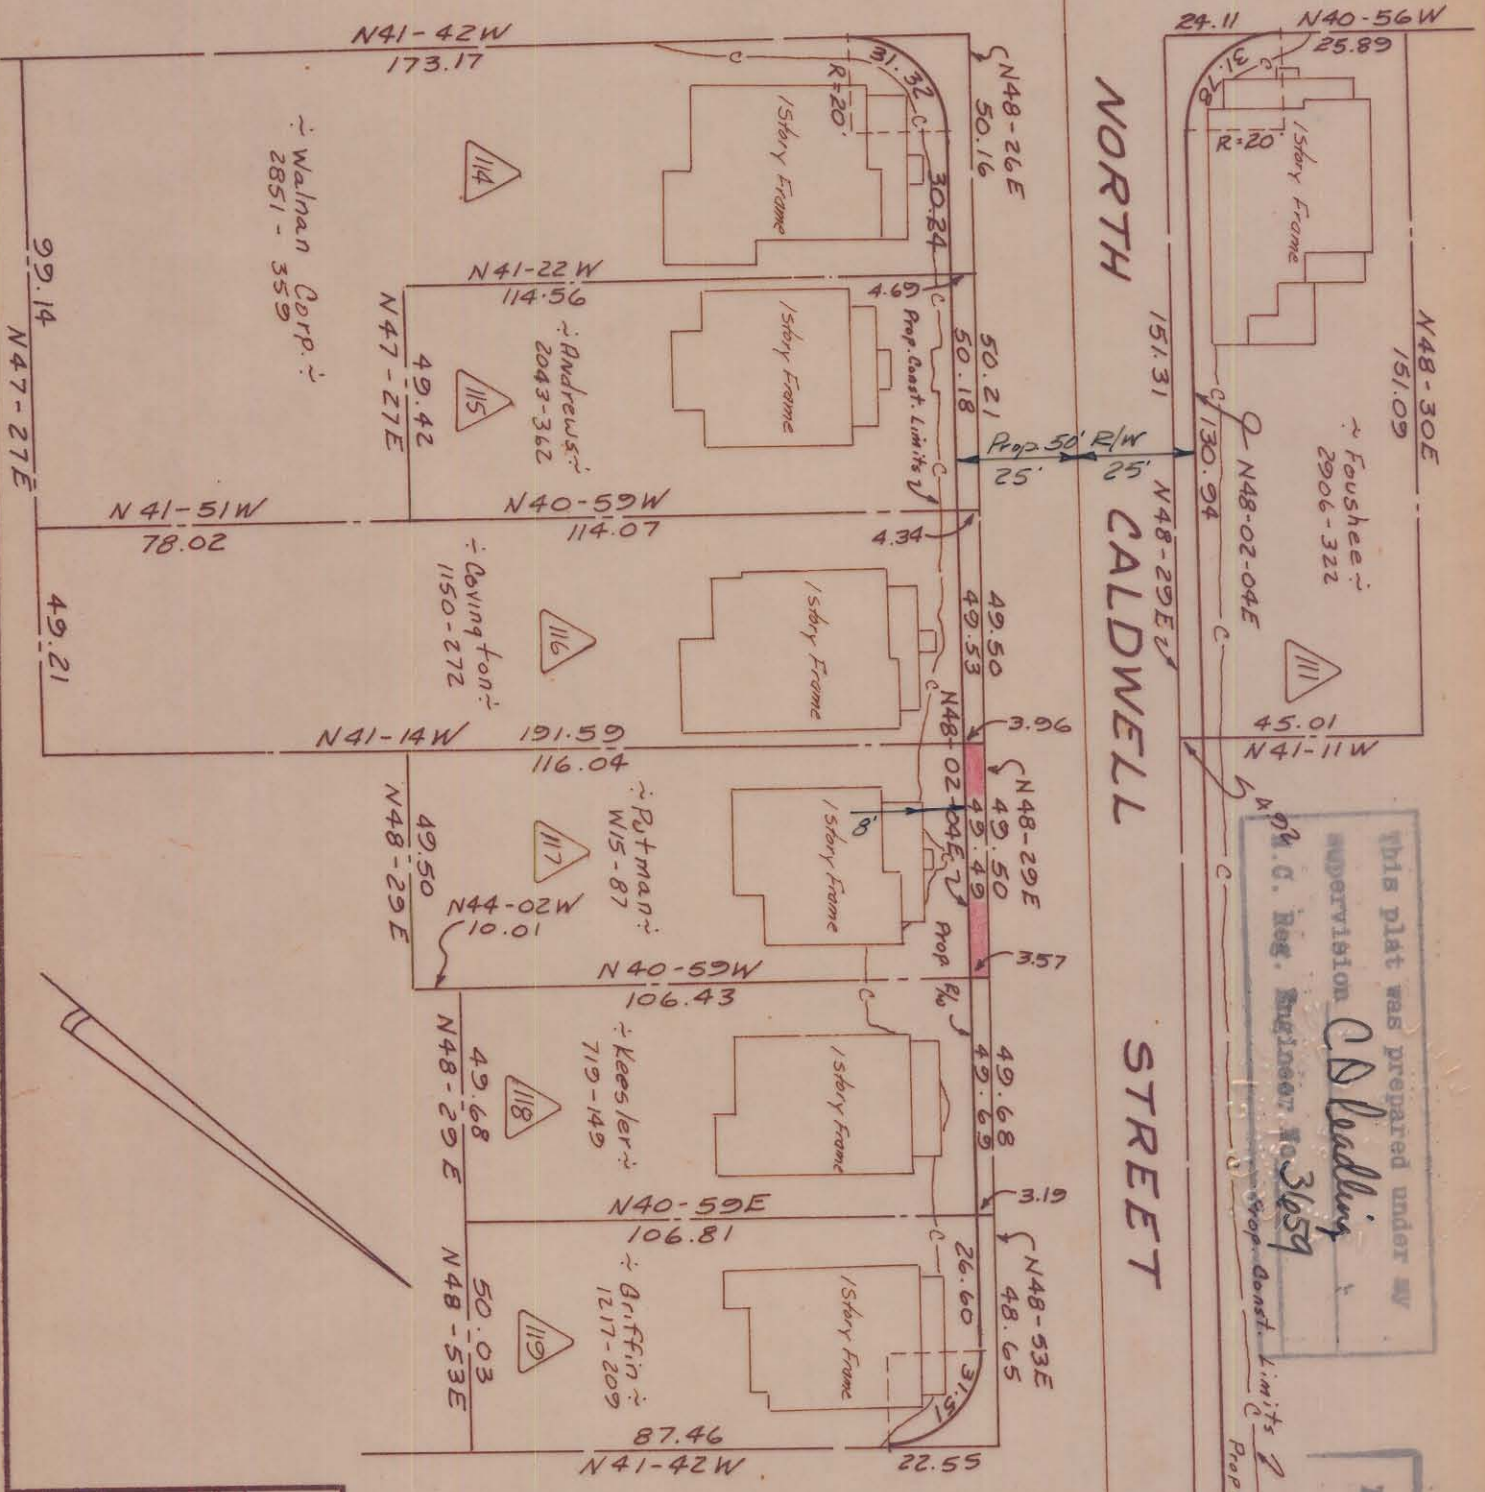 N41-42W
173.17
C
31.32
R=20'
C
N48-26E
50.16
30.24
1 Story Frame
114
~ Walnan Corp. ~
2851-359
99.14
N47-27E
N41-22W
114.56
4.69
C
Prop. Const. Limits
50.21
50.18
1 Story Frame
~ Andrews ~
2043-362
115
49.42
N47-27E
C
N41-51W
78.02
N40-59W
114.07
4.34
49.50
49.53
1 Story Frame
116
~ Covington ~
1150-272
49.21
C
N41-14W
191.59
116.04
3.96
N48-02-04E
N48-29E
49.50
49.49
8'
1 Story Frame
~ Putman ~
W15-87
117
49.50
N48-29E
N44-02W
10.01
Prop R/W
3.57
N40-59W
106.43
C
49.68
49.69
1 Story Frame
~ Keesler ~
719-149
118
49.68
N48-29E
3.19
N40-59E
106.81
C
N48-53E
48.65
26.60
31.51
1 Story Frame
~ Griffin ~
1217-209
119
50.03
N48-53E
87.46
N41-42W
22.55
NORTH CALDWELL STREET
Prop. 50' R/W
25'
25'
24.11
N40-56W
25.89
31.78
C
R=20'
1 Story Frame
N48-30E
151.09
151.31
N48-29E
C
130.94
N48-02-04E
~ Foushee ~
2906-322
111
C
45.01
N41-11W
4.92
C
This plat was prepared under my
supervision C D Leadling
N.C. Reg. Engineer No 3659
C
Prop. Const. Limits
C
Prop